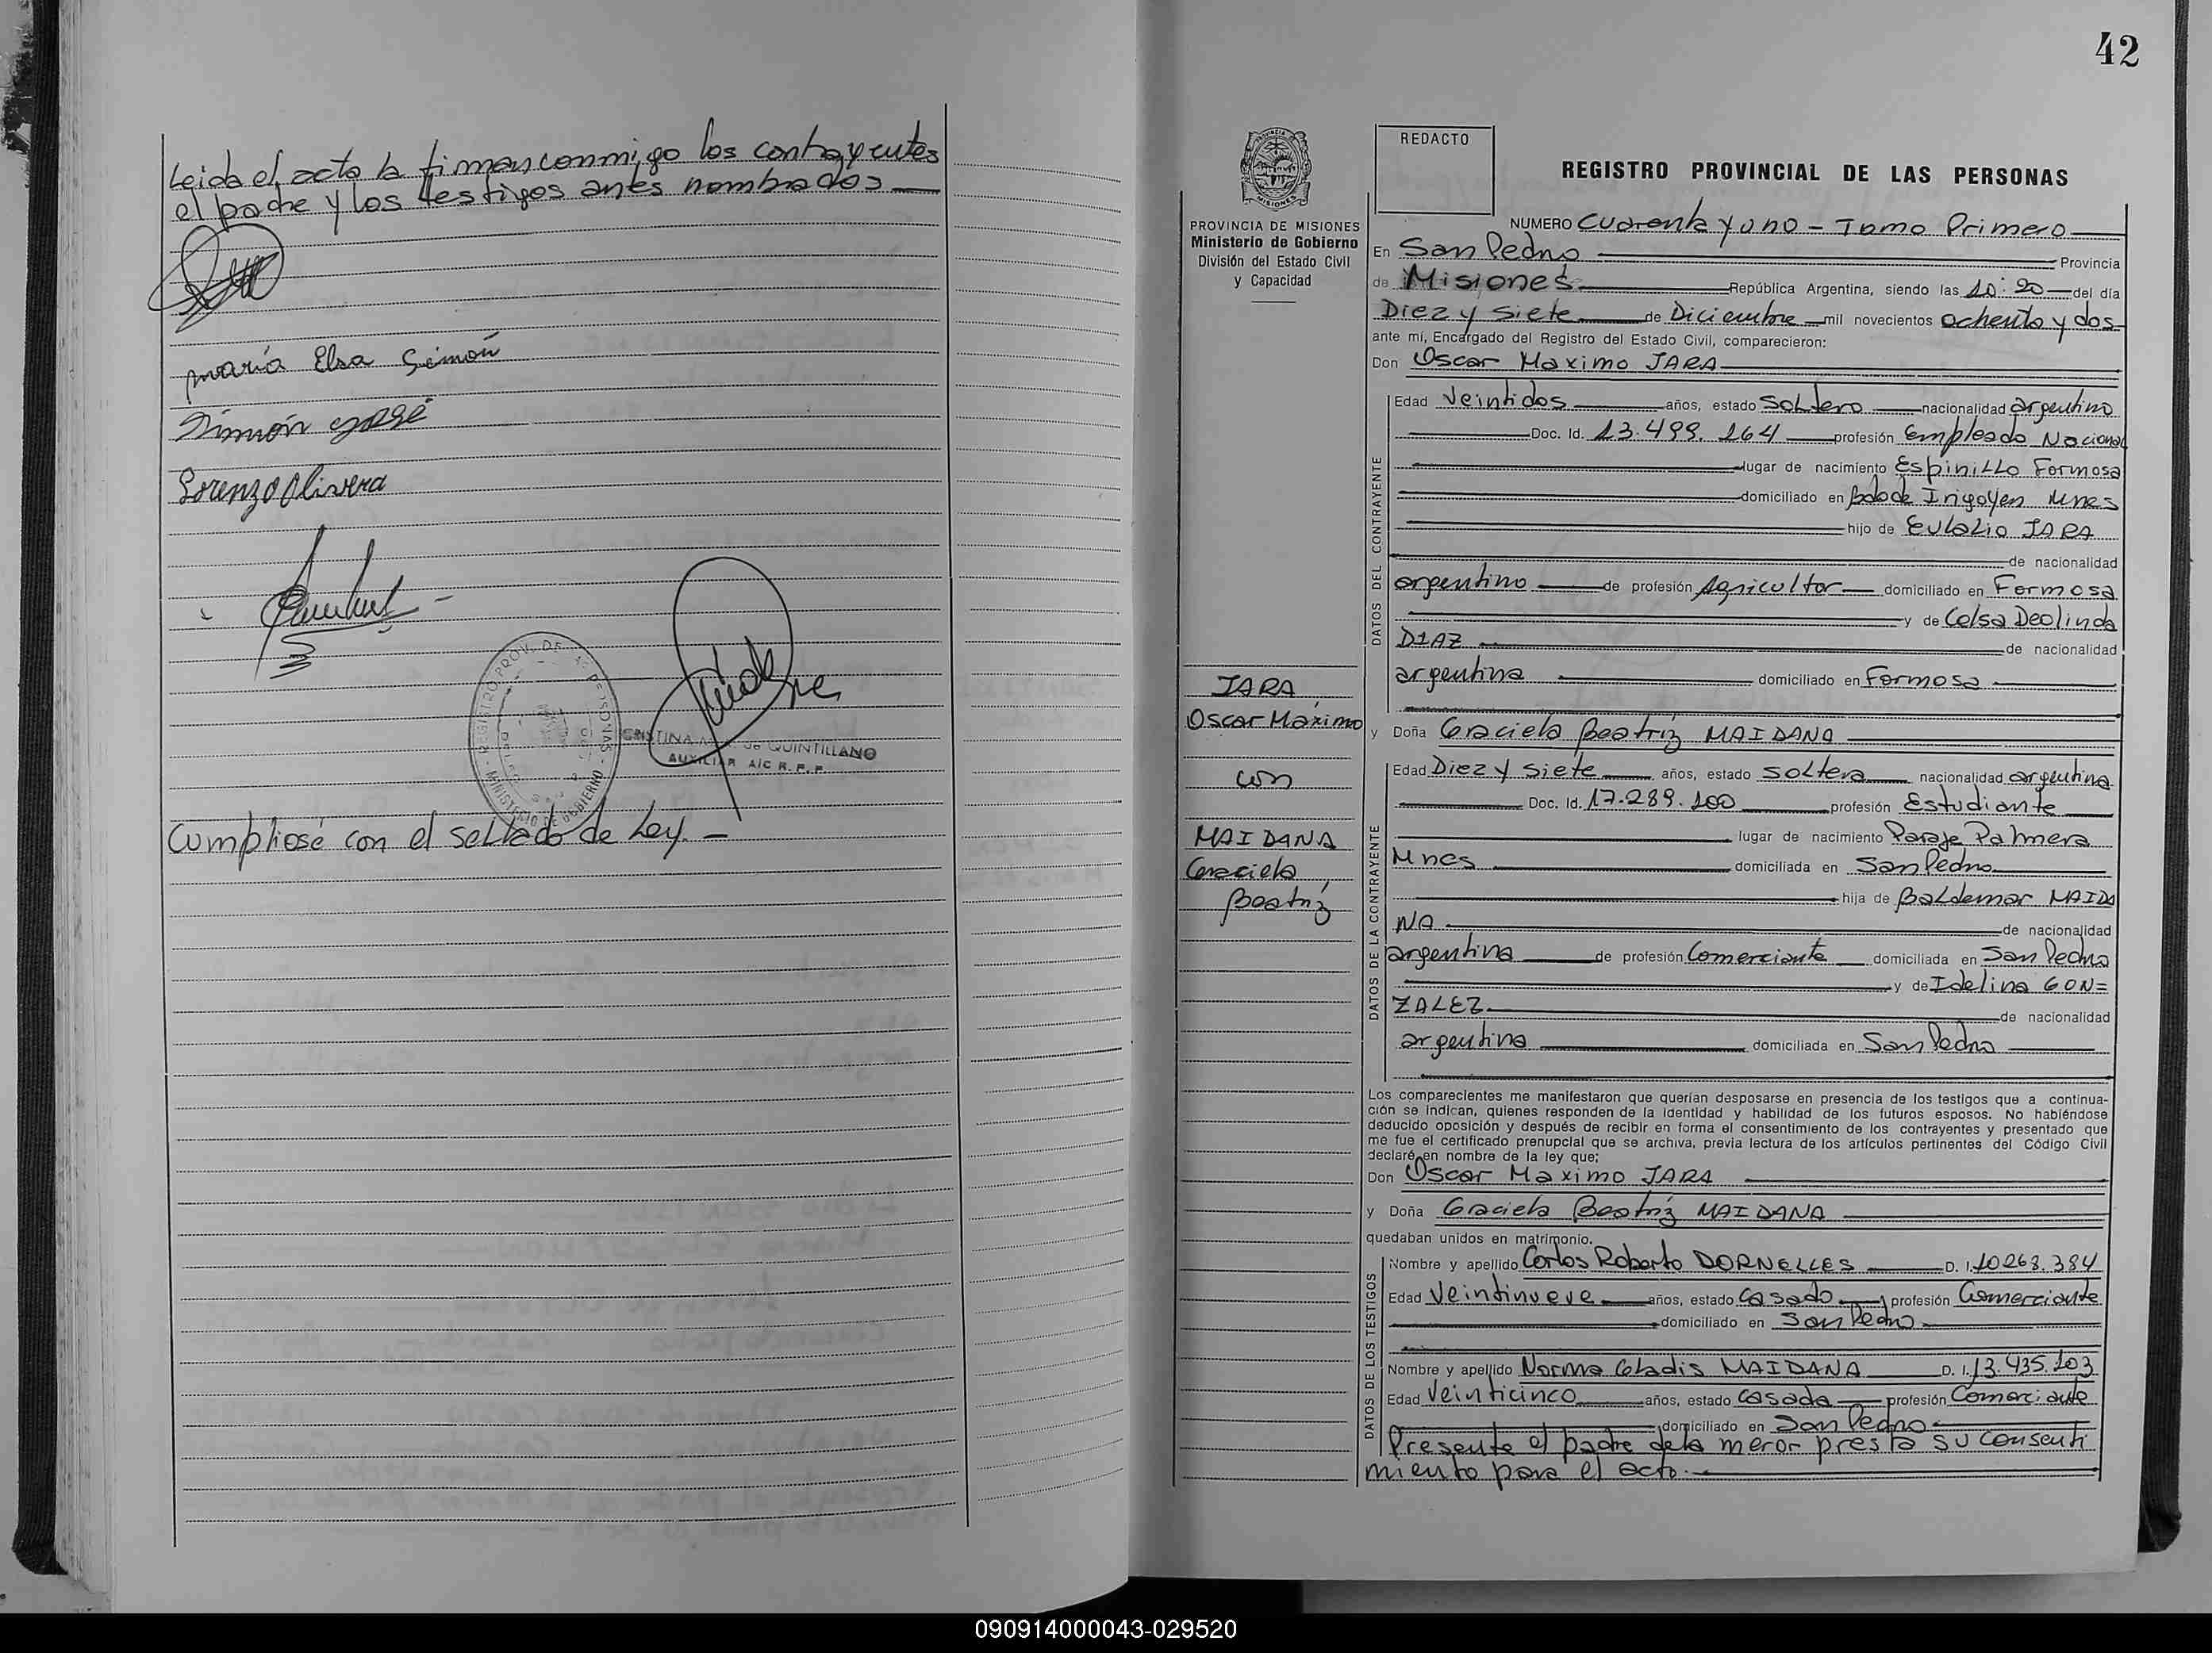 Leida el acta la firman conmigo los contrayentes
el padre y los testigos antes nombrados
maría Elsa Simón
Simón José
Lorenzo Olivera
REGISTRO PROV. DE
MINISTERIO DE GOBIERNO
de QUINTILLANO
AUXILIAR A/C R. P. P.
Cumpliose con el sellado de Ley. -
42
REDACTO
REGISTRO PROVINCIAL DE LAS PERSONAS
MISIONES
PROVINCIA DE MISIONES
Ministerio de Gobierno
División del Estado Civil
y Capacidad
JARA
Oscar Máximo
con
MAIDANA
Graciela
Beatríz
NUMERO Cuarenta y uno - Tomo Primero
En San Pedro Provincia
de Misiones República Argentina, siendo las 10:20 del día
Diez y Siete de Diciembre mil novecientos ochenta y dos
ante mí, Encargado del Registro del Estado Civil, comparecieron:
Don Oscar Maximo JARA
DATOS DEL CONTRAYENTE
Edad Veintidos años, estado Soltero nacionalidad argentino
Doc. Id. 13.499.164 profesión Empleado Nacional
lugar de nacimiento Espinillo Formosa
domiciliado en Bdo de Irigoyen Mnes
hijo de Eulalio JARA
de nacionalidad
argentino de profesión Agricultor domiciliado en Formosa
y de Celsa Deolinda
DIAZ de nacionalidad
argentina domiciliado en Formosa
y Doña Graciela Beatríz MAIDANA
DATOS DE LA CONTRAYENTE
Edad Diez y Siete años, estado Soltera nacionalidad argentina
Doc. Id. 17.289.100 profesión Estudiante
lugar de nacimiento Paraje Palmera
Mnes domiciliada en San Pedro
hija de Baldemar MAIDA
NA de nacionalidad
argentina de profesión Comerciante domiciliada en San Pedro
y de Idelina GON=
ZALEZ de nacionalidad
argentina domiciliada en San Pedro
Los comparecientes me manifestaron que querían desposarse en presencia de los testigos que a continua-
ción se indican, quienes responden de la identidad y habilidad de los futuros esposos. No habiéndose
deducido oposición y después de recibir en forma el consentimiento de los contrayentes y presentado que
me fue el certificado prenupcial que se archiva, previa lectura de los artículos pertinentes del Código Civil
declaré en nombre de la ley que;
Don Oscar Maximo JARA
y Doña Graciela Beatríz MAIDANA
quedaban unidos en matrimonio.
DATOS DE LOS TESTIGOS
Nombre y apellido Carlos Roberto DORNELLES D. I. 10268.384
Edad Veintinueve años, estado Casado profesión Comerciante
domiciliado en San Pedro
Nombre y apellido Norma Gladis MAIDANA D. I. 13.435.103
Edad Veinticinco años, estado Casada profesión Comerciante
domiciliado en San Pedro
Presente el padre de la menor presta su consenti
miento para el acto.-
090914000043-029520